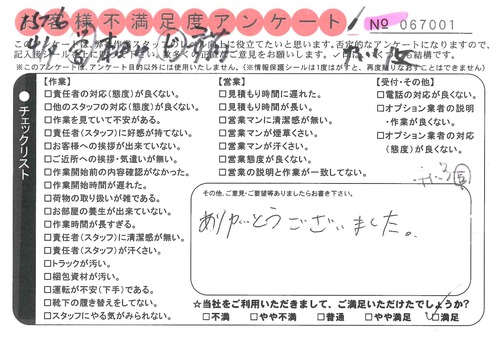 お客様不満足度アンケート
No 067001
このアンケートは、弊社
向上に役立てたいと思います。否定的なアンケートになりますので、
ご意見をお願いします。
※このアンケートは、アンケート目的以外には使用いたしません。(※情報保護シールは1度はがすと、再度貼りなおすことはできません)
チェックリスト
【作業】
□責任者の対応(態度)が良くない。
□他のスタッフの対応(態度)が良くない。
□作業を見ていて不安がある。
□責任者(スタッフ)に好感が持てない。
□お客様への挨拶が出来ていない。
□ご近所への挨拶・気遣いが無い。
□作業開始前の内容確認がなかった。
□作業開始時間が遅れた。
□荷物の取り扱いが雑である。
□お部屋の養生が出来ていない。
□作業時間が長すぎる。
□責任者(スタッフ)に清潔感が無い。
□責任者(スタッフ)が汗くさい。
□トラックが汚い。
□梱包資材が汚い。
□運転が不安(下手)である。
□靴下の履き替えをしてない。
□スタッフにやる気がみられない。
【営業】
□見積もり時間に遅れた。
□見積もり時間が長い。
□営業マンに清潔感が無い。
□営業マンが煙草くさい。
□営業マンが汗くさい。
□営業態度が良くない。
□営業の説明と作業が一致してない。
【受付・その他】
□電話の対応が良くない。
□オプション業者の説明
・作業が良くない。
□オプション業者の対応
(態度)が良くない。
その他、ご意見・ご要望等ありましたらお書き下さい。
ありがとうございました。
☆当社をご利用いただきまして、ご満足いただけたでしょうか?
□不満 □やや不満 □普通 □やや満足 □満足